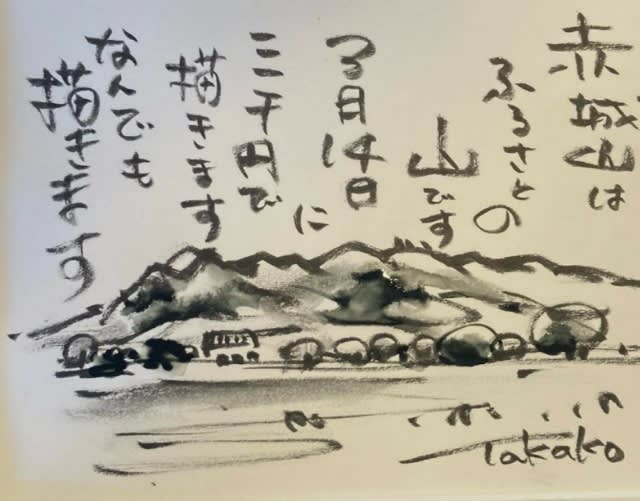 赤城山は
ふるさとの
山です
3月14日
に
三千円で
描きます
なんでも
描きます
Takako